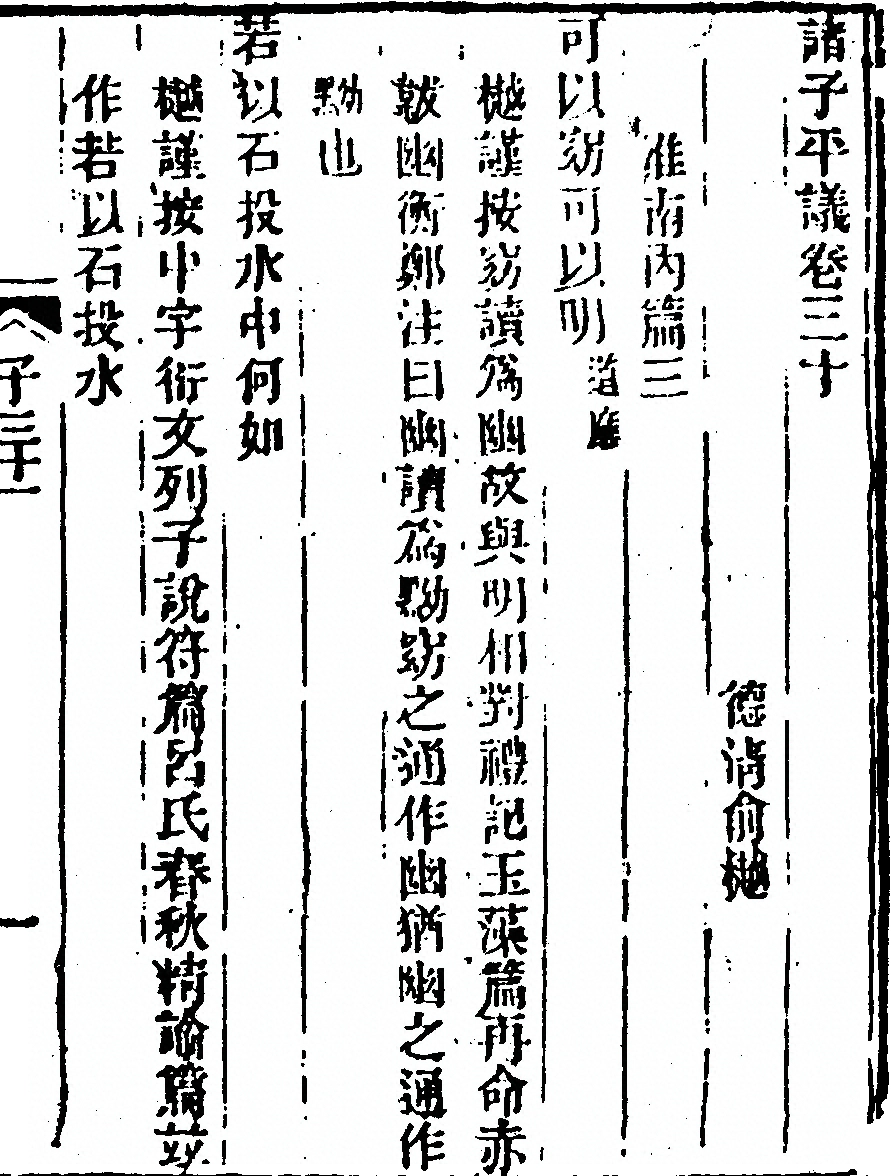 諸子平議卷三十
德淸俞樾
淮南內篇三
可以窈可以明道應
樾謹按窈讀爲幽故與明相對禮記玉藻篇再命赤
韍幽衡鄭注曰幽讀爲黝窈之通作幽猶幽之通作
黝也
若以石投水中何如
樾謹按中字衍文列子說符篇呂氏春秋精諭篇竝
作若以石投水
子三十一